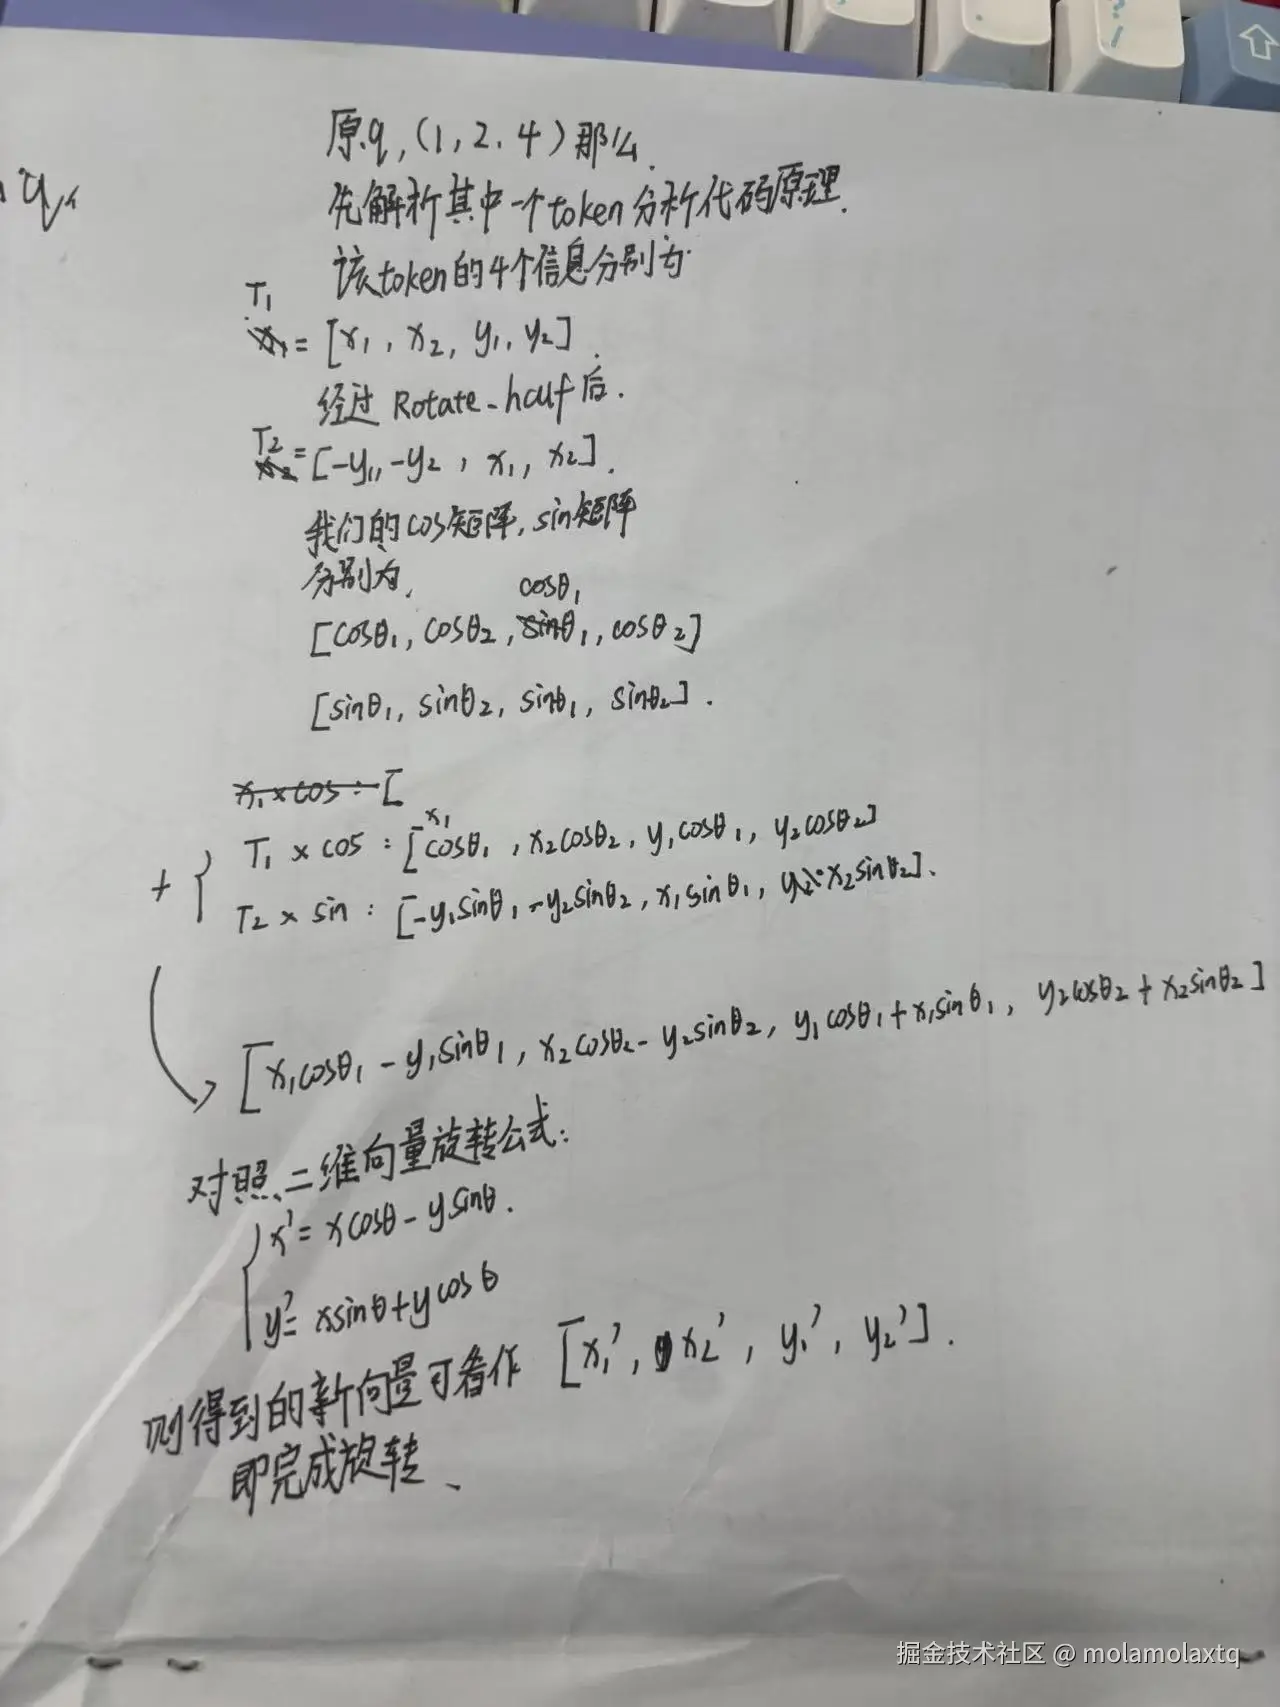 原q,(1,2,4)那么.
q
先解析其中一个token分析代码原理.
该token的4个信息分别为
T1
= [x1, x2, y1, y2].
经过 Rotate_half后.
T2
= [-y1, -y2, x1, x2].
我们的cos矩阵, sin矩阵
分别为,
cosθ1
[cosθ1, cosθ2, sinθ1, cosθ2]
[sinθ1, sinθ2, sinθ1, sinθ2].
x1×cos: [
x1
T1 × cos: [cosθ1, x2cosθ2, y1cosθ1, y2cosθ2]
+ {
T2 × sin: [-y1sinθ1, -y2sinθ2, x1sinθ1, x2sinθ2].
[x1cosθ1 - y1sinθ1, x2cosθ2 - y2sinθ2, y1cosθ1 + x1sinθ1, y2cosθ2 + x2sinθ2]
对照二维向量旋转公式:
{ x' = xcosθ - ysinθ.
y' = xsinθ + ycosθ
则得到的新向量可看作 [x1', x2', y1', y2'].
即完成旋转、
掘金技术社区 @ molamolaxtq